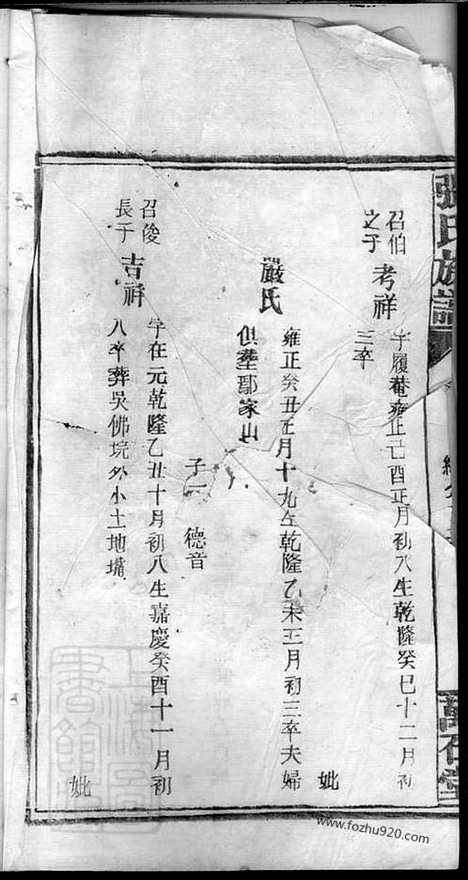 張氏族譜
召伯
之子
考祥
字履菴雍正己酉正月初八生乾隆癸巳十二月初
三卒
妣
嚴氏
雍正癸丑正月十九生乾隆乙未三月初三卒夫婦
俱塟鄢家山
子一 德音
召俊
長子
吉祥
字在元乾隆乙丑十月初八生嘉慶癸酉十一月初
八卒葬吳佛垸外小土地墈
妣
www.fozhu920.com